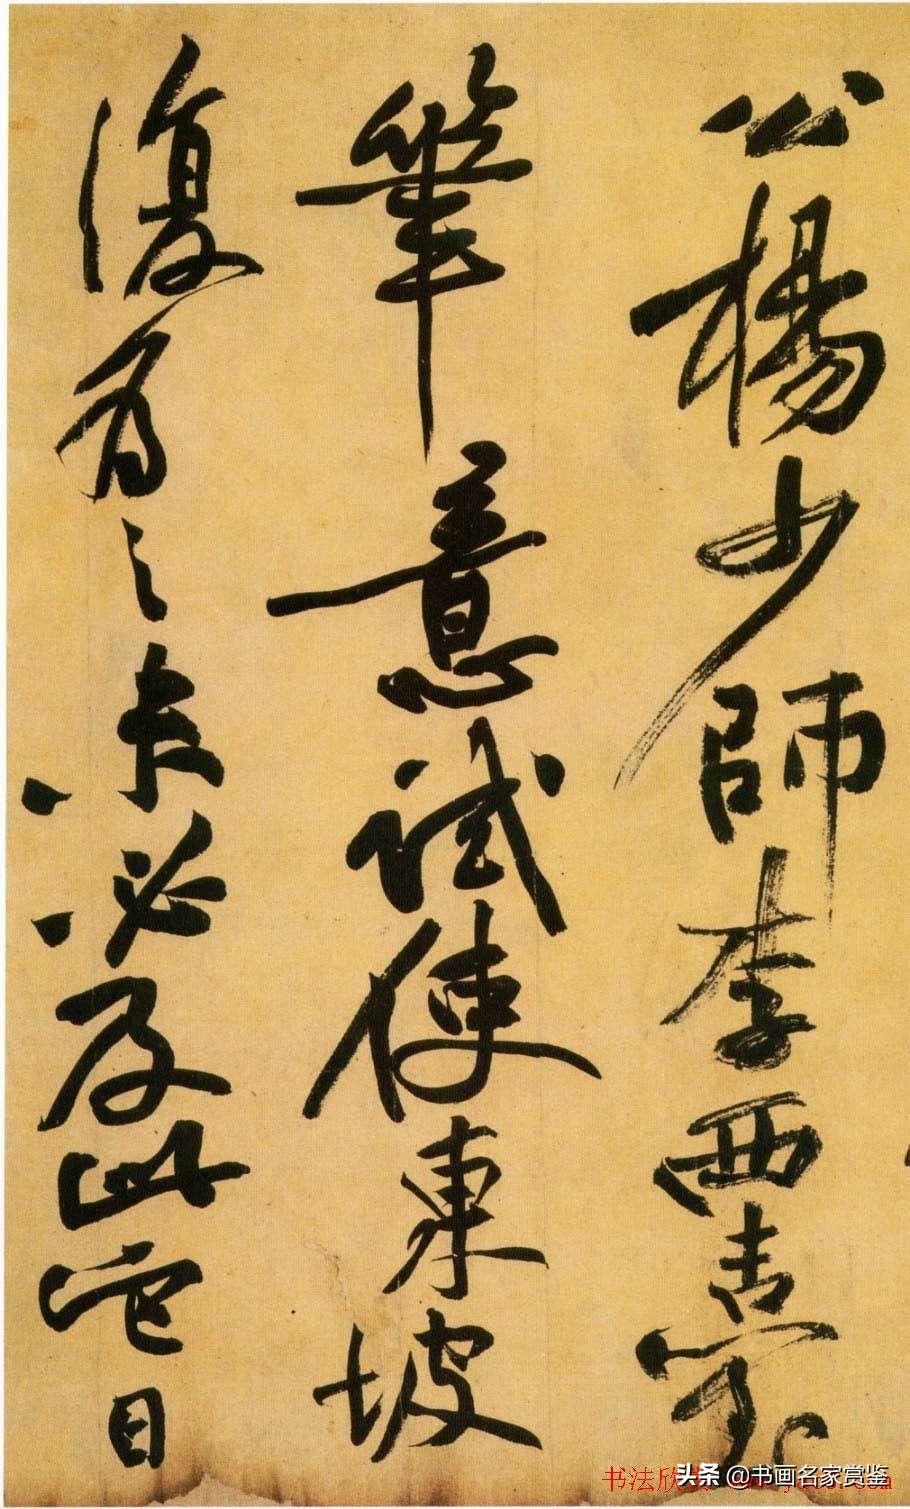 公楊少師李西臺
筆意試使東坡
復為之未必及此它日
书法欣赏
头条 @书画名家赏鉴